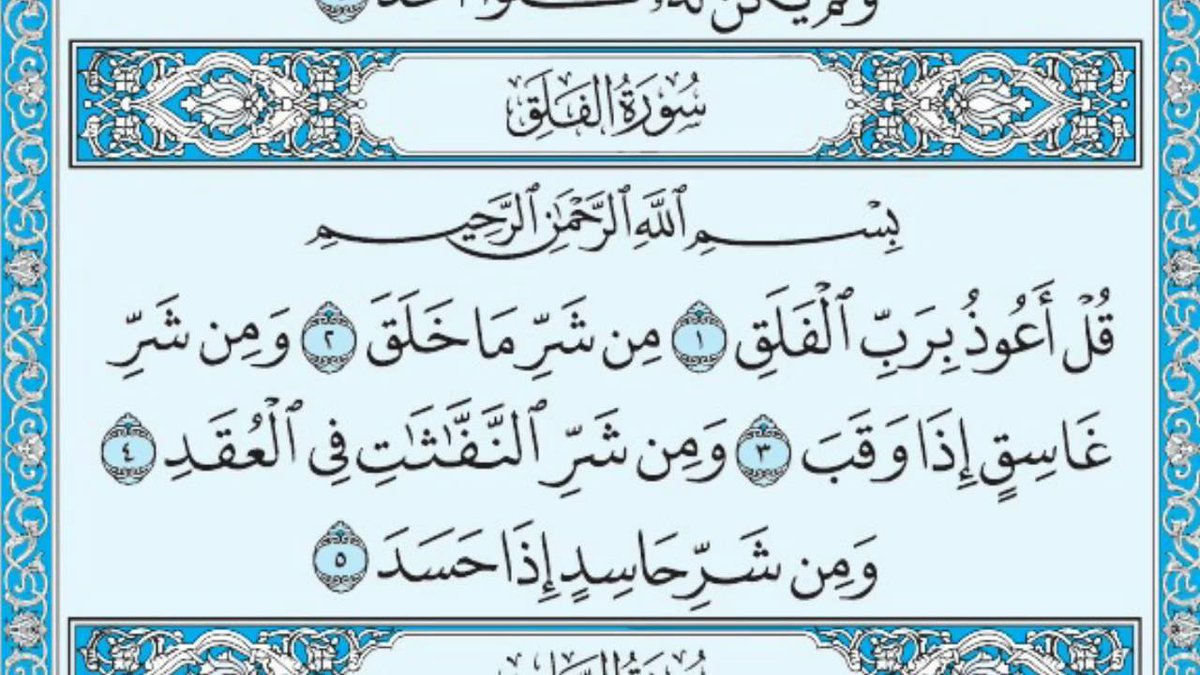 ولم يكن له كفوا أحد
سُورَةُ الفَلَقِ
بِسْمِ ٱللَّهِ ٱلرَّحْمَٰنِ ٱلرَّحِيمِ
قُلْ أَعُوذُ بِرَبِّ ٱلْفَلَقِ ١ مِن شَرِّ مَا خَلَقَ ٢ وَمِن شَرِّ
غَاسِقٍ إِذَا وَقَبَ ٣ وَمِن شَرِّ ٱلنَّفَّٰثَٰتِ فِى ٱلْعُقَدِ ٤
وَمِن شَرِّ حَاسِدٍ إِذَا حَسَدَ ٥
سُورَةُ